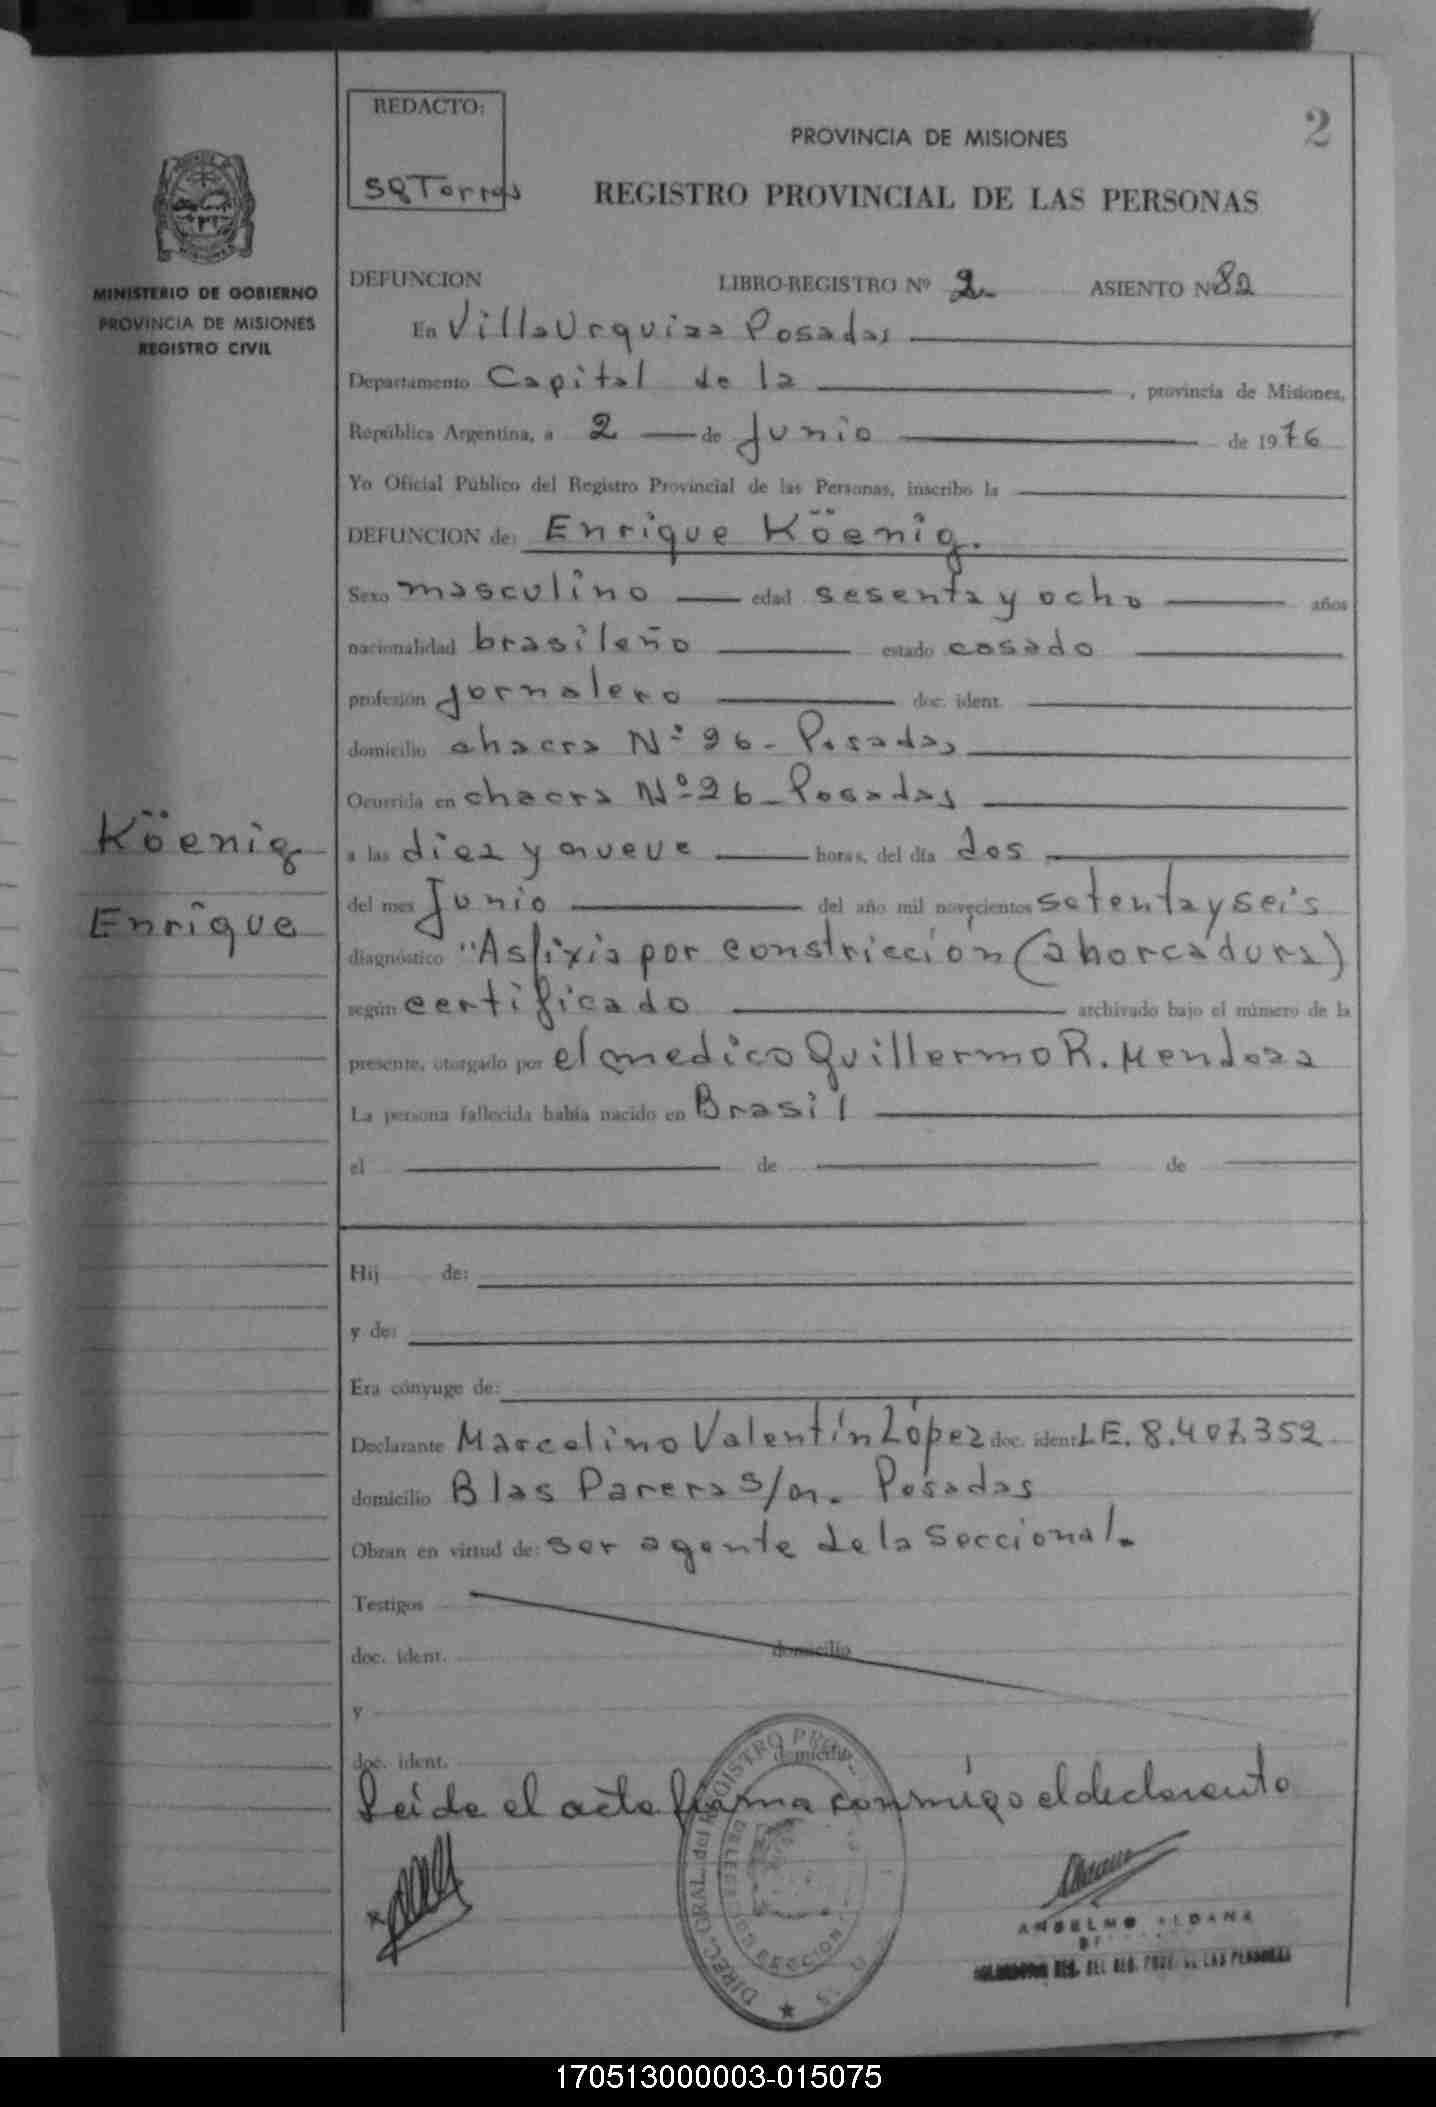 REDACTO:
SQTorres
2
PROVINCIA DE MISIONES
REGISTRO PROVINCIAL DE LAS PERSONAS
MINISTERIO DE GOBIERNO
PROVINCIA DE MISIONES
REGISTRO CIVIL
DEFUNCION LIBRO-REGISTRO Nº 2 ASIENTO Nº 82
En Villa Urquiza Posadas
Departamento Capital de la , provincia de Misiones,
República Argentina, a 2 de Junio de 1976
Yo Oficial Público del Registro Provincial de las Personas, inscribo la
DEFUNCION de: Enrique Köenig.
Sexo masculino edad sesenta y ocho años
nacionalidad brasileño estado casado
profesión Jornalero doc. ident.
domicilio chacra Nº 96 - Posadas
Ocurrida en chacra Nº 96 - Posadas
a las diez y nueve horas, del día dos
del mes Junio del año mil novecientos setenta y seis
diagnóstico "Asfixia por constricción (ahorcadura)
según certificado archivado bajo el número de la
presente, otorgado por el medico Guillermo R. Mendoza
La persona fallecida había nacido en Brasil
el de de
Köenig
Enrique
Hij de:
y de:
Era cónyuge de:
Declarante Marcelino Valentín López doc. ident. LE. 8.407.352
domicilio Blas Parera s/n. Posadas
Obran en virtud de: ser agente de la Seccional.
Testigos
doc. ident. domicilio
y
doc. ident. domicilio
Leida el acta firma conmigo el declarante
DIREC. GRAL. del REGISTRO PROV.
ANSELMO ALDANA
DEL REG. PROV. DE LAS PERSONAS
170513000003-015075